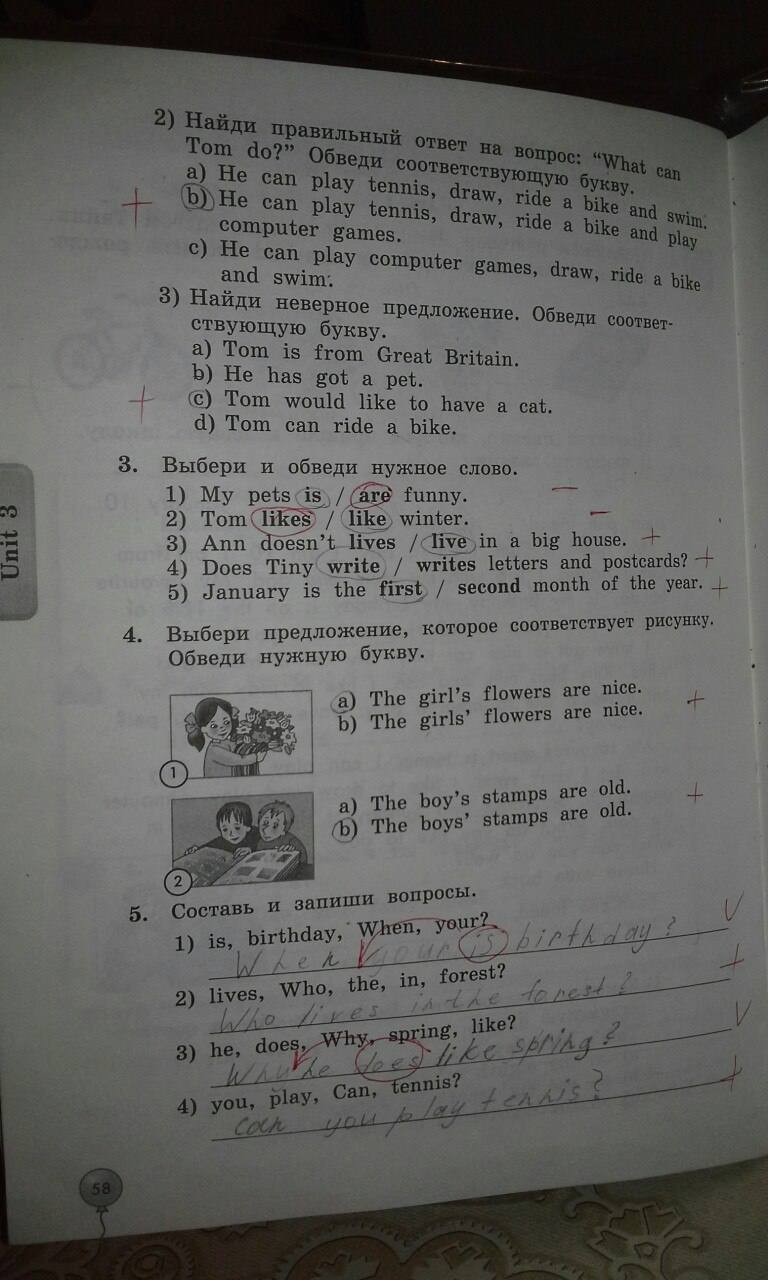 2) Найди правильный ответ на вопрос: “What can
Tom do?” Обведи соответствующую букву.
a) He can play tennis, draw, ride a bike and swim.
b) He can play tennis, draw, ride a bike and play
computer games.
c) He can play computer games, draw, ride a bike
and swim.
3) Найди неверное предложение. Обведи соответ-
ствующую букву.
a) Tom is from Great Britain.
b) He has got a pet.
c) Tom would like to have a cat.
d) Tom can ride a bike.
3. Выбери и обведи нужное слово.
1) My pets is / are funny.
2) Tom likes / like winter.
3) Ann doesn’t lives / live in a big house.
4) Does Tiny write / writes letters and postcards?
5) January is the first / second month of the year.
Unit 3
4. Выбери предложение, которое соответствует рисунку.
Обведи нужную букву.
a) The girl’s flowers are nice.
b) The girls’ flowers are nice.
1
a) The boy’s stamps are old.
b) The boys’ stamps are old.
2
5. Составь и запиши вопросы.
1) is, birthday, When, your?
When your is birthday?
2) lives, Who, the, in, forest?
Who lives in the forest?
3) he, does, Why, spring, like?
Why he does like spring?
4) you, play, Can, tennis?
can you play tennis?
58